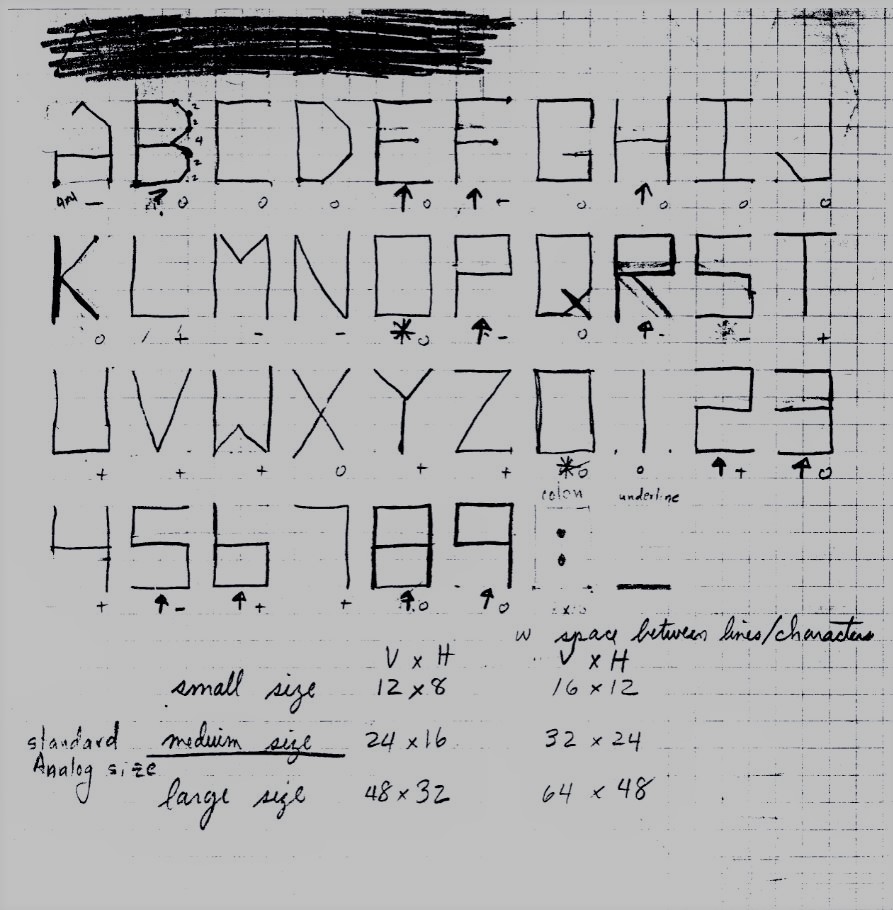 A B C D E F G H I J
K L M N O P Q R S T
U V W X Y Z 0 1 2 3
colon underline
4 5 6 7 8 9 : _
w space between lines/characters
V x H V x H
small size 12 x 8 16 x 12
standard medium size 24 x 16 32 x 24
Analog size
large size 48 x 32 64 x 48